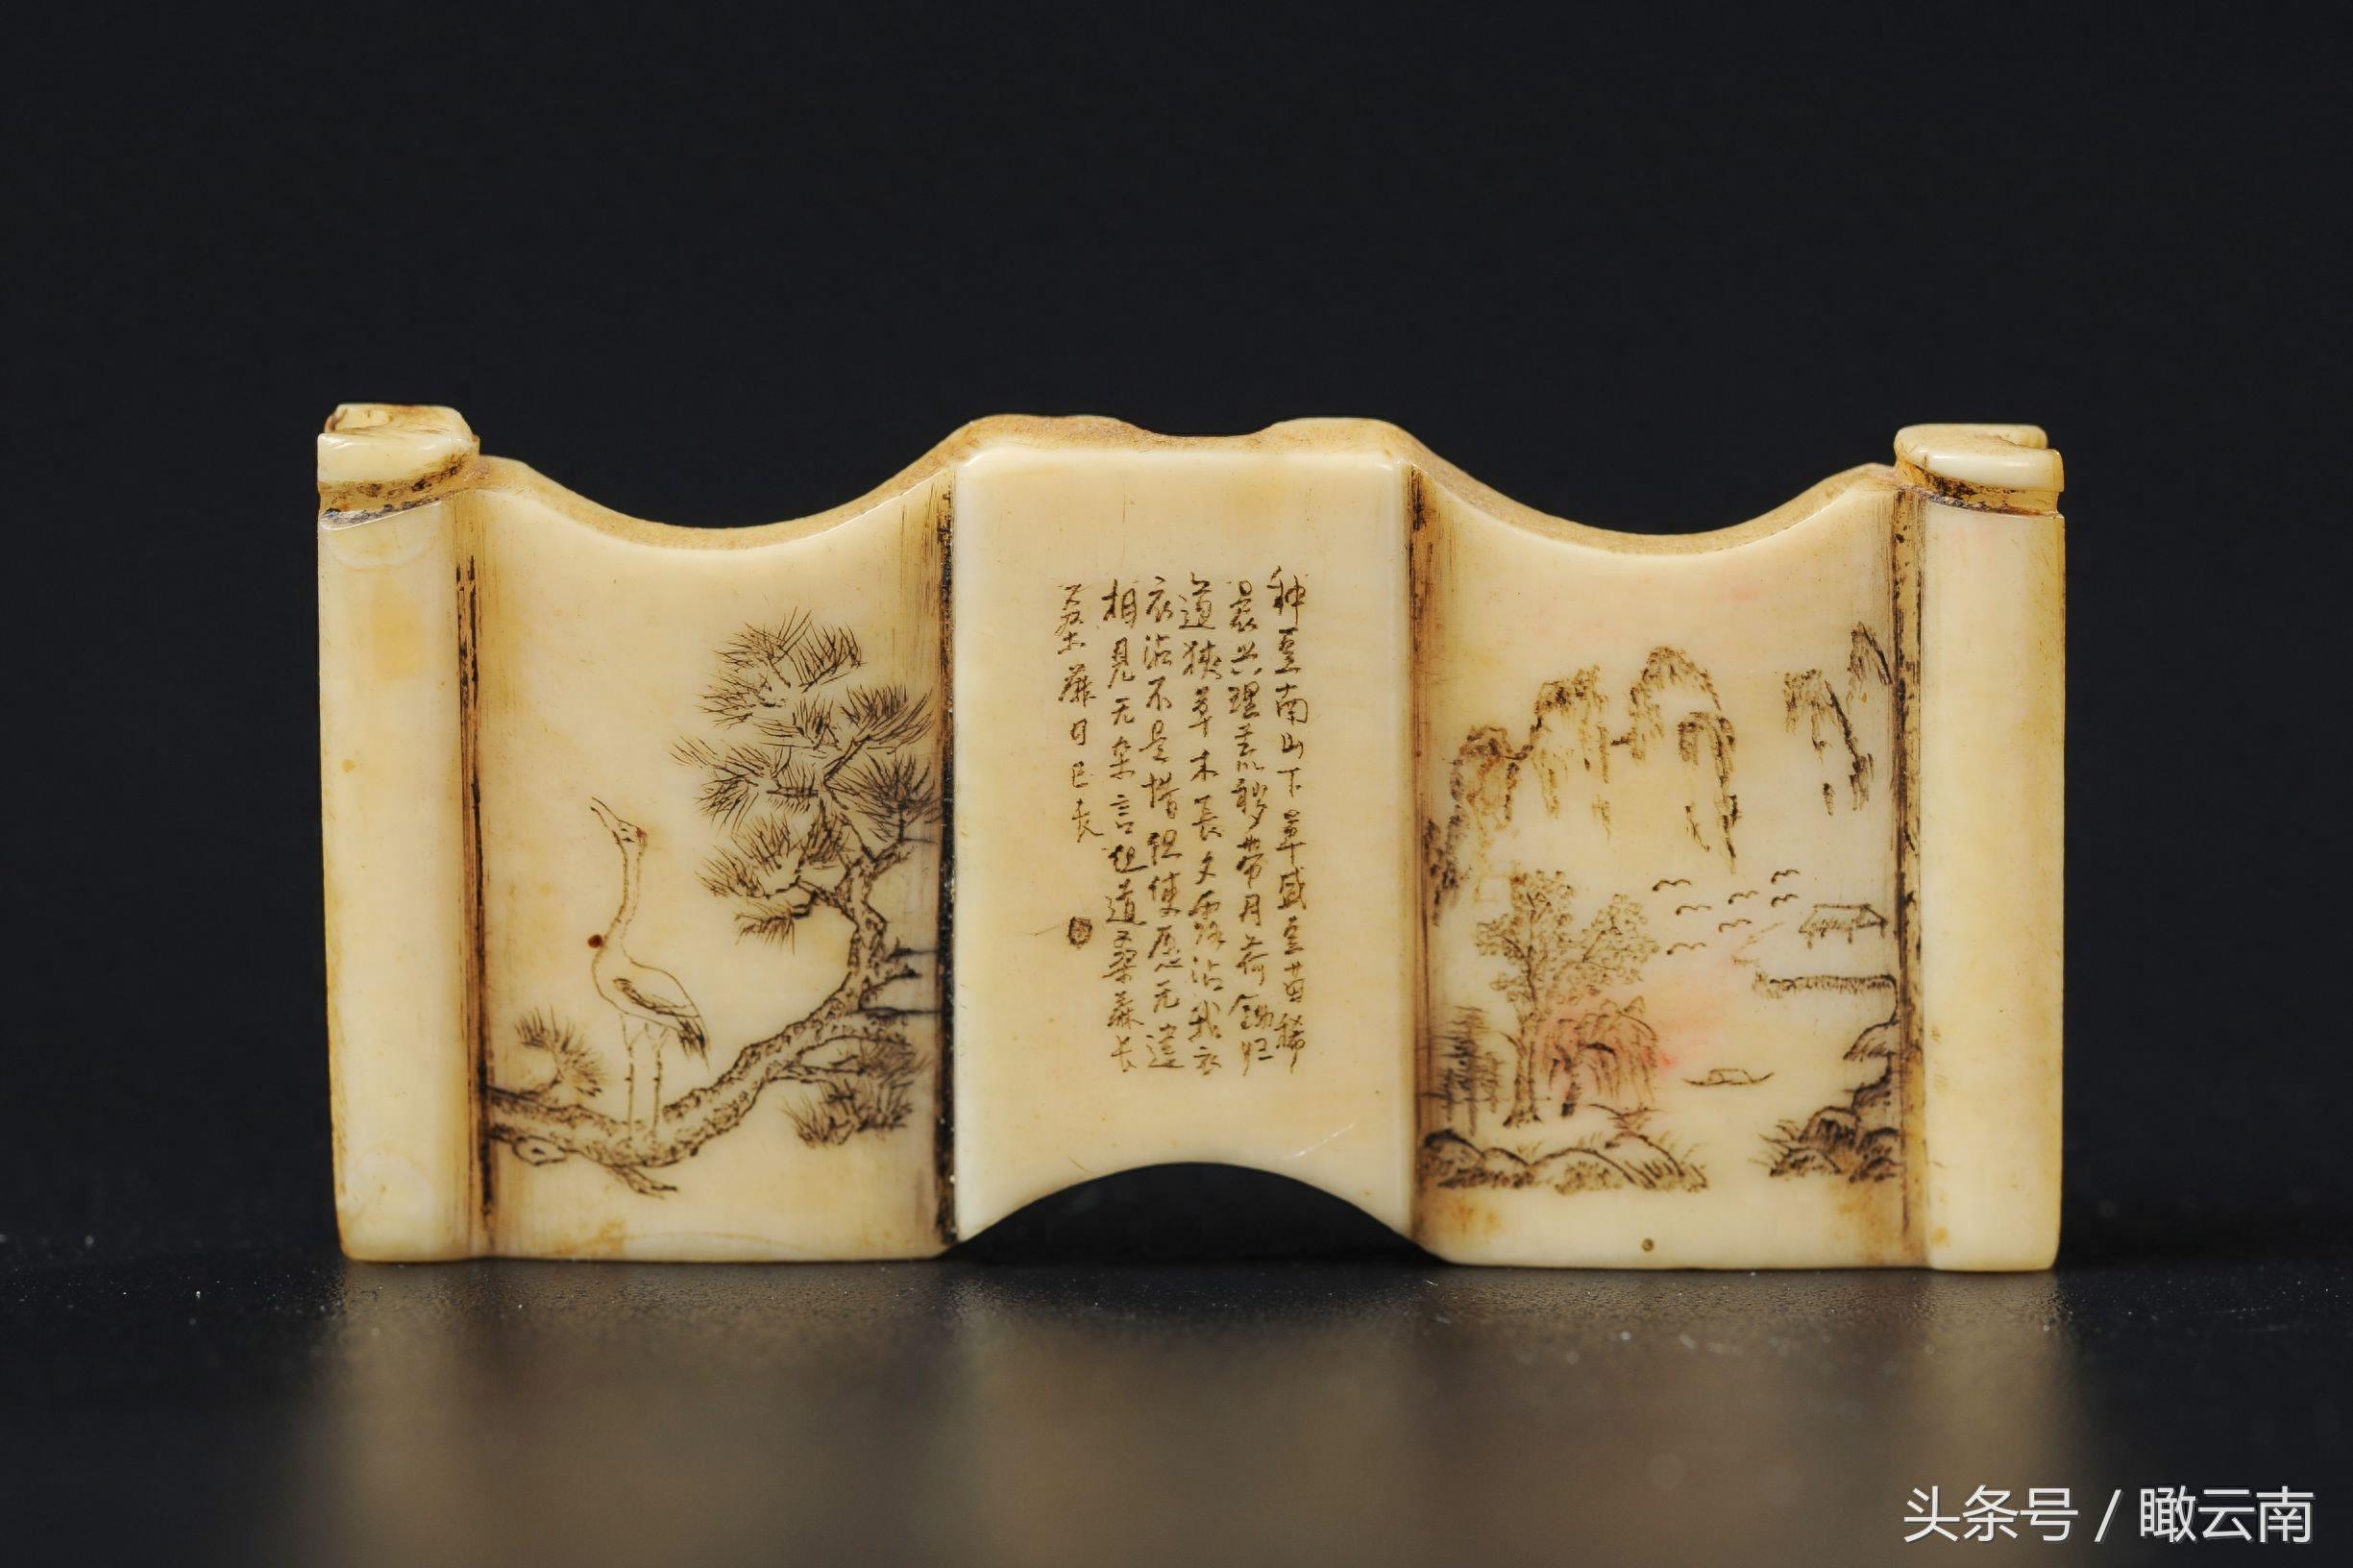 种豆南山下草盛豆苗稀
晨兴理荒秽带月荷锄归
道狭草木長夕露沾我衣
衣沾不足惜但使愿无违
相见无杂言但道桑麻长
桑麻日已长
头条号 / 瞰云南